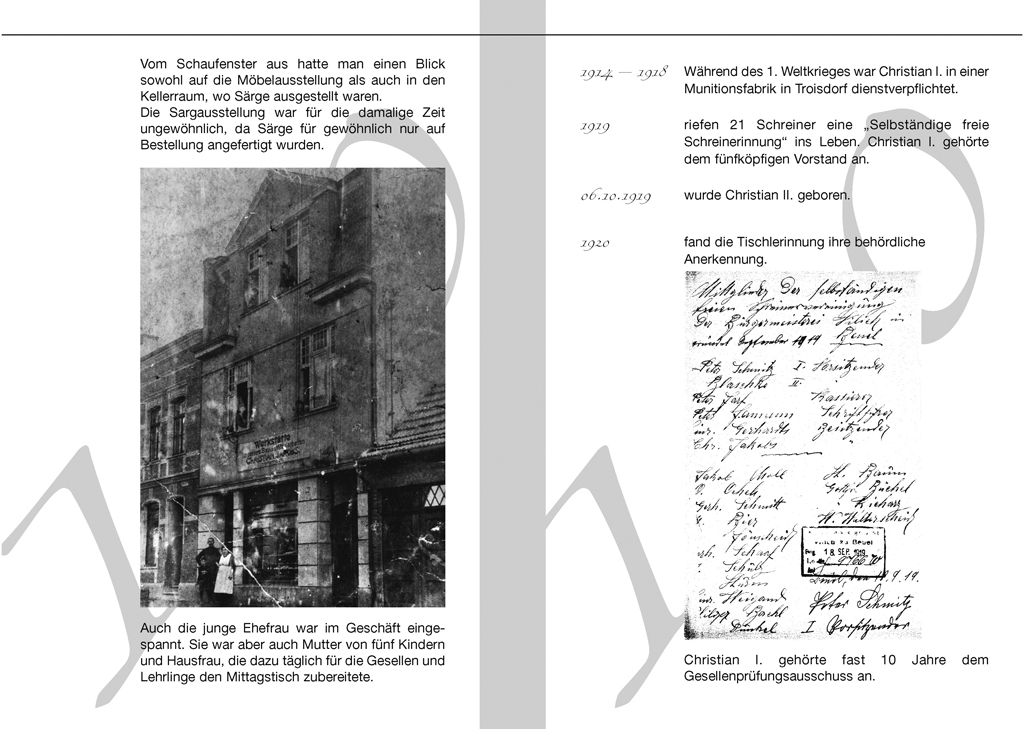 Vom Schaufenster aus hatte man einen Blick
sowohl auf die Möbelausstellung als auch in den
Kellerraum, wo Särge ausgestellt waren.
Die Sargausstellung war für die damalige Zeit
ungewöhnlich, da Särge für gewöhnlich nur auf
Bestellung angefertigt wurden.
Werkstätte
Auch die junge Ehefrau war im Geschäft einge-
spannt. Sie war aber auch Mutter von fünf Kindern
und Hausfrau, die dazu täglich für die Gesellen und
Lehrlinge den Mittagstisch zubereitete.
1914 — 1918 Während des 1. Weltkrieges war Christian I. in einer
Munitionsfabrik in Troisdorf dienstverpflichtet.
1919 riefen 21 Schreiner eine „Selbständige freie
Schreinerinnung“ ins Leben. Christian I. gehörte
dem fünfköpfigen Vorstand an.
06.10.1919 wurde Christian II. geboren.
1920 fand die Tischlerinnung ihre behördliche
Anerkennung.
Mitglieder Der selbständigen
freien Schreinervereinigung
Der Bürgermeisterei Vilich in
September 1919 Beuel
Peter Schmitz I. Vorsitzender
Blaschke II.
Peter Kassierer
Peter Schriftführer
Gerhardts Beisitzender
Chr. Jakobs
Jakob
Gerh. Schmitt
18. SEP. 1919
Peter Schmitz
I Vorsitzender
Christian I. gehörte fast 10 Jahre dem
Gesellenprüfungsausschuss an.